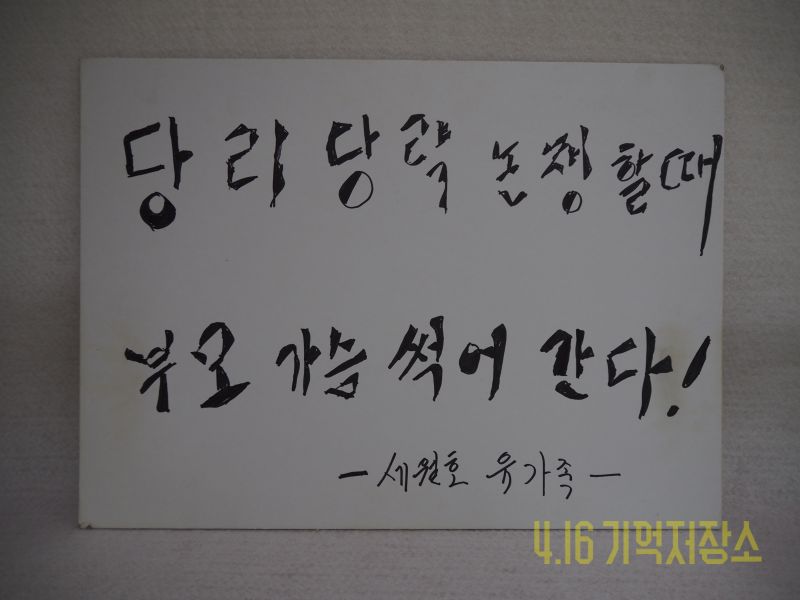 당리당략 논쟁할때
부모 가슴 썩어 간다!
-세월호 유가족-
4.16 기억저장소